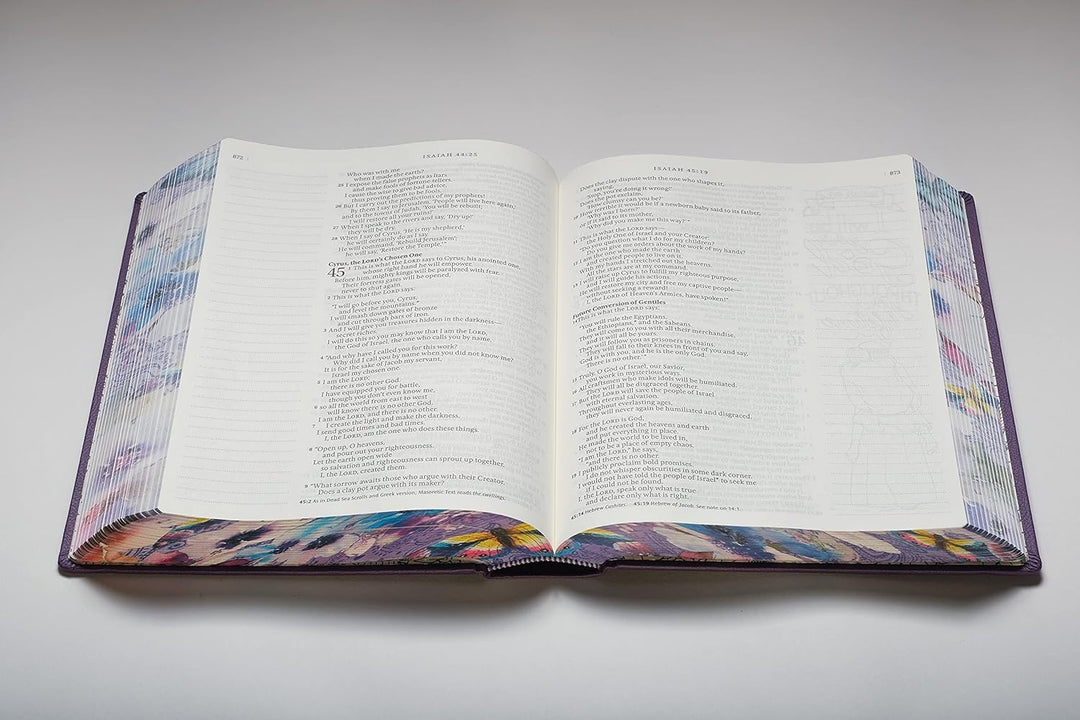 872
ISAIAH 44:25
Who was with me
when I made the earth?
25 I expose the false prophets as liars
and make fools of fortune-tellers.
I cause the wise to give bad advice,
thus proving them to be fools.
26 But I carry out the predictions of my prophets!
By them I say to Jerusalem, ‘People will live here again’
and to the towns of Judah, ‘You will be rebuilt;
I will restore all your ruins!’
27 When I speak to the rivers and say, ‘Dry up!’
they will be dry.
28 When I say of Cyrus, ‘He is my shepherd,’
he will certainly do as I say.
He will command, ‘Rebuild Jerusalem’;
he will say, ‘Restore the Temple.’”
Cyrus, the LORD’s Chosen One
45 1 This is what the LORD says to Cyrus, his anointed one,
whose right hand he will empower.
Before him, mighty kings will be paralyzed with fear.
Their fortress gates will be opened,
never to shut again.
2 This is what the LORD says:
“I will go before you, Cyrus,
and level the mountains.*
I will smash down gates of bronze
and cut through bars of iron.
3 And I will give you treasures hidden in the darkness—
secret riches.
I will do this so you may know that I am the LORD,
the God of Israel, the one who calls you by name.
4 “And why have I called you for this work?
Why did I call you by name when you did not know me?
It is for the sake of Jacob my servant,
Israel my chosen one.
5 I am the LORD;
there is no other God.
I have equipped you for battle,
though you don’t even know me,
6 so all the world from east to west
will know there is no other God.
I am the LORD, and there is no other.
7 I create the light and make the darkness.
I send good times and bad times.
I, the LORD, am the one who does these things.
8 “Open up, O heavens,
and pour out your righteousness.
Let the earth open wide
so salvation and righteousness can sprout up together.
I, the LORD, created them.
9 “What sorrow awaits those who argue with their Creator.
Does a clay pot argue with its maker?
45:2 As in Dead Sea Scrolls and Greek version; Masoretic Text reads the swellings.
ISAIAH 45:19
873
Does the clay dispute with the one who shapes it,
saying,
‘Stop, you’re doing it wrong!’
Does the pot exclaim,
‘How clumsy can you be?’
10 How terrible it would be if a newborn baby said to its father,
‘Why was I born?’
or if it said to its mother,
‘Why did you make me this way?’”
11 This is what the LORD says—
the Holy One of Israel and your Creator:
“Do you question what I do for my children?
Do you give me orders about the work of my hands?
12 I am the one who made the earth
and created people to live on it.
With my hands I stretched out the heavens.
All the stars are at my command.
13 I will raise up Cyrus to fulfill my righteous purpose,
and I will guide his actions.
He will restore my city and free my captive people—
without seeking a reward!
I, the LORD of Heaven’s Armies, have spoken!”
Future Conversion of Gentiles
14 This is what the LORD says:
“You will rule the Egyptians,
the Ethiopians,* and the Sabeans.
They will come to you with all their merchandise,
and it will all be yours.
They will follow you as prisoners in chains.
They will fall to their knees in front of you and say,
‘God is with you, and he is the only God.
There is no other.’”
15 Truly, O God of Israel, our Savior,
you work in mysterious ways.
16 All craftsmen who make idols will be humiliated.
They will all be disgraced together.
17 But the LORD will save the people of Israel
with eternal salvation.
Throughout everlasting ages,
they will never again be humiliated and disgraced.
18 For the LORD is God,
and he created the heavens and earth
and put everything in place.
He made the world to be lived in,
not to be a place of empty chaos.
“I am the LORD,” he says,
“and there is no other.
19 I publicly proclaim bold promises.
I do not whisper obscurities in some dark corner.
I would not have told the people of Israel* to seek me
if I could not be found.
I, the LORD, speak only what is true
and declare only what is right.
45:14 Hebrew Cushites. 45:19 Hebrew of Jacob. See note on 14:1.